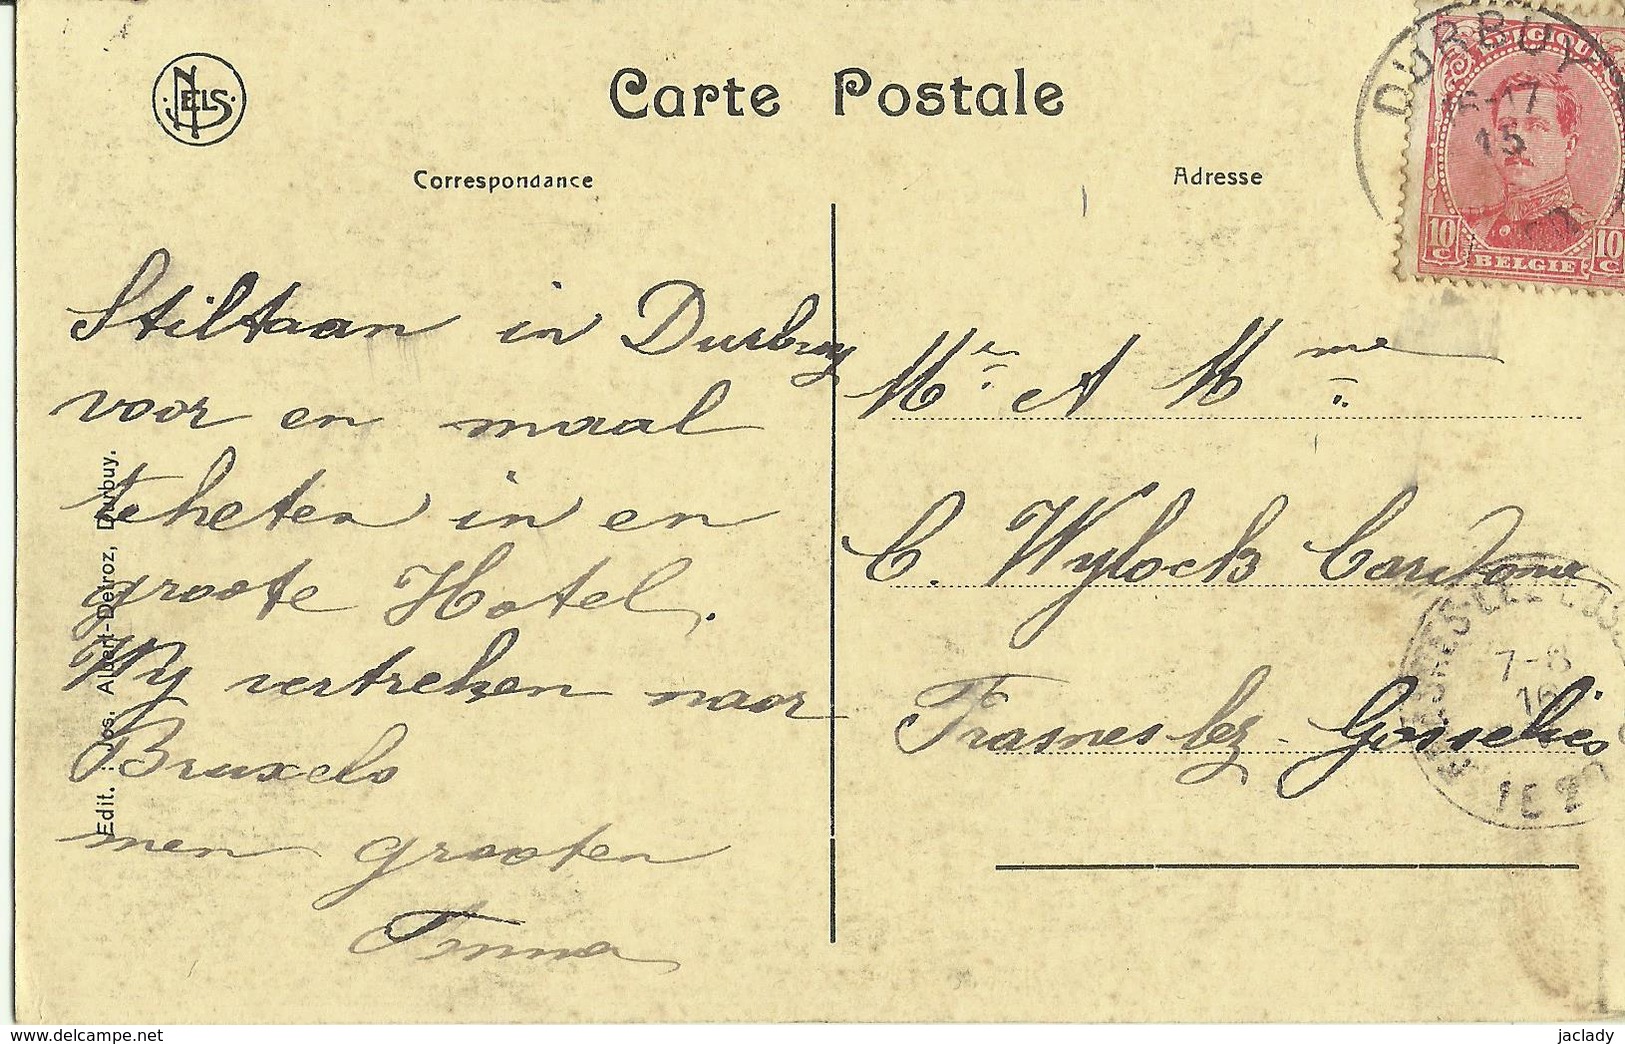 NELS
Carte Postale
Correspondance
Adresse
DURBUY
16-17
15
BELGIQUE
10 C
BELGIE
10 C
Stiltaan in Durbuy
voor en maal
teheten in en
groote Hotel.
Wy vertreken naar
Bruxels
men grooten
Edit. Jos. Albert-Detroz, Durbuy.
Mr et Mme
C. Wylock
Frasnes lez - Gosselies
FRASNES-LEZ-GOSS
7-8
16
delcampe.net
jaclady